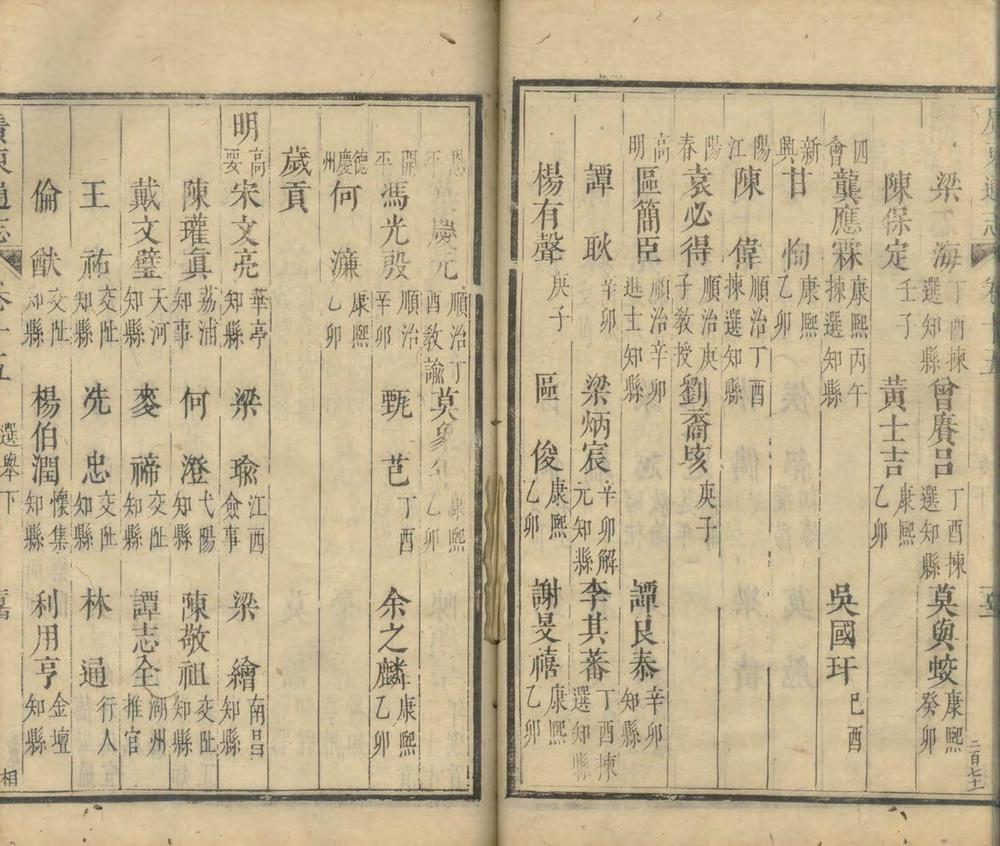 梁海 丁酉揀選知縣 曾賡吕 丁酉揀選知縣 莫與蛟 康熙癸卯
陳保定 壬子 黃士吉 康熙乙卯
四會 龔應霖 康熙丙午揀選知縣 吳國玕 已酉
新興 甘恂 康熙乙卯
陽江 陳偉 順治丁酉揀選知縣
陽春 袁必得 順治庚子教授 劉裔㤥 庚子
高明 區簡臣 順治辛卯進士知縣 譚艮泰 辛卯知縣
譚耿 辛卯 梁炳宸 辛卯解元知縣 李其蕃 丁酉揀選知縣
楊有聲 庚子 區俊 康熙乙卯 謝旻禧 康熙乙卯
恩平 慶元 順治丁酉教諭 莫象年 康熙乙卯
開平 馮光殷 順治辛卯 甄芑 丁酉 余之麟 康熙乙卯
德慶州 何濂 康熙乙卯
歲貢
明 高要 宋文亮 華亭知縣 梁瑜 江西僉事 梁繪 南昌知縣
陳瓘真 荔浦知事 何澄 弋陽知縣 陳敬祖 交趾知縣
戴文璧 天河知縣 麥禘 交趾知縣 譚志全 潮州推官
王祐 交趾知縣 冼忠 交趾知縣 林通 行人
倫猷 交趾知縣 楊伯潤 懷集知縣 利用亨 金壇知縣
廣東通志 卷十五 選舉下 相